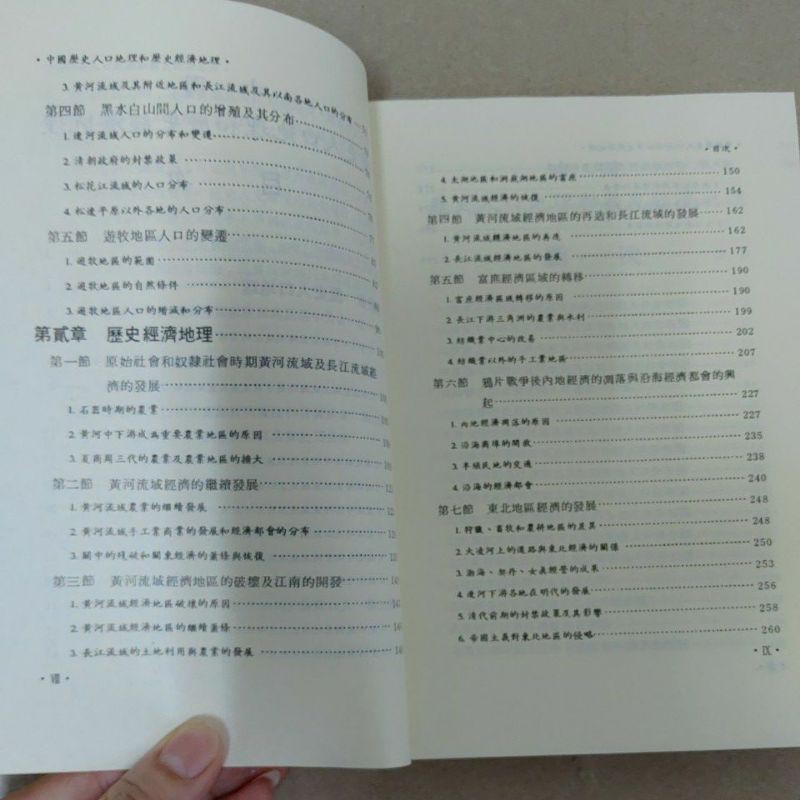 •中國歷史人口地理和歷史經濟地理•
3. 黃河流域及其附近地區和長江流域及其以南各地人口的分布
第四節 黑水白山間人口的增殖及其分布
1. 遼河流域人口的分布和變遷
2. 清朝政府的封禁政策
3. 松花江流域的人口分布
4. 松遼平原以外各地的人口分布
第五節 遊牧地區人口的變遷
1. 遊牧地區的範圍
2. 遊牧地區的自然條件
3. 遊牧地區人口的增減和分布
第貳章 歷史經濟地理
第一節 原始社會和奴隸社會時期黃河流域及長江流域經
濟的發展
1. 石器時期的農業
2. 黃河中下游成為重要農業地區的原因
3. 夏商周三代的農業及農業地區的擴大
第二節 黃河流域經濟的繼續發展
1. 黃河流域農業的繼續發展
2. 黃河流域手工業商業的發展和經濟都會的分布
3. 關中的殘破和關東經濟的蕭條與恢復
第三節 黃河流域經濟地區的破壞及江南的開發
1. 黃河流域經濟地區破壞的原因
2. 黃河流域經濟地區的繼續蕭條
3. 長江流域的土地利用與農業的發展
•Ⅷ•
•目次•
4. 太湖地區和洞庭湖地區的富庶 150
5. 黃河流域經濟的恢復 154
第四節 黃河流域經濟地區的再造和長江流域的發展 162
1. 黃河流域經濟地區的再造 162
2. 長江流域經濟地區的發展 177
第五節 富庶經濟區域的轉移 190
1. 富庶經濟區域轉移的原因 190
2. 長江下游三角洲的農業與水利 199
3. 紡織業中心的改易 202
4. 紡織業以外的手工業地區 207
第六節 鴉片戰爭後內地經濟的凋落與沿海經濟都會的興
起 227
1. 內地經濟凋落的原因 227
2. 沿海商埠的開放 235
3. 半殖民地的交通 238
4. 沿海的經濟都會 240
第七節 東北地區經濟的發展 248
1. 狩獵、畜牧和農耕地區的差異 248
2. 大凌河上的道路與東北經濟的關係 250
3. 渤海、契丹、女真經營的成果 253
4. 遼河下游各地在明代的發展 256
5. 清代前期的封禁政策及其影響 258
6. 帝國主義對東北地區的侵略 260
•Ⅸ•